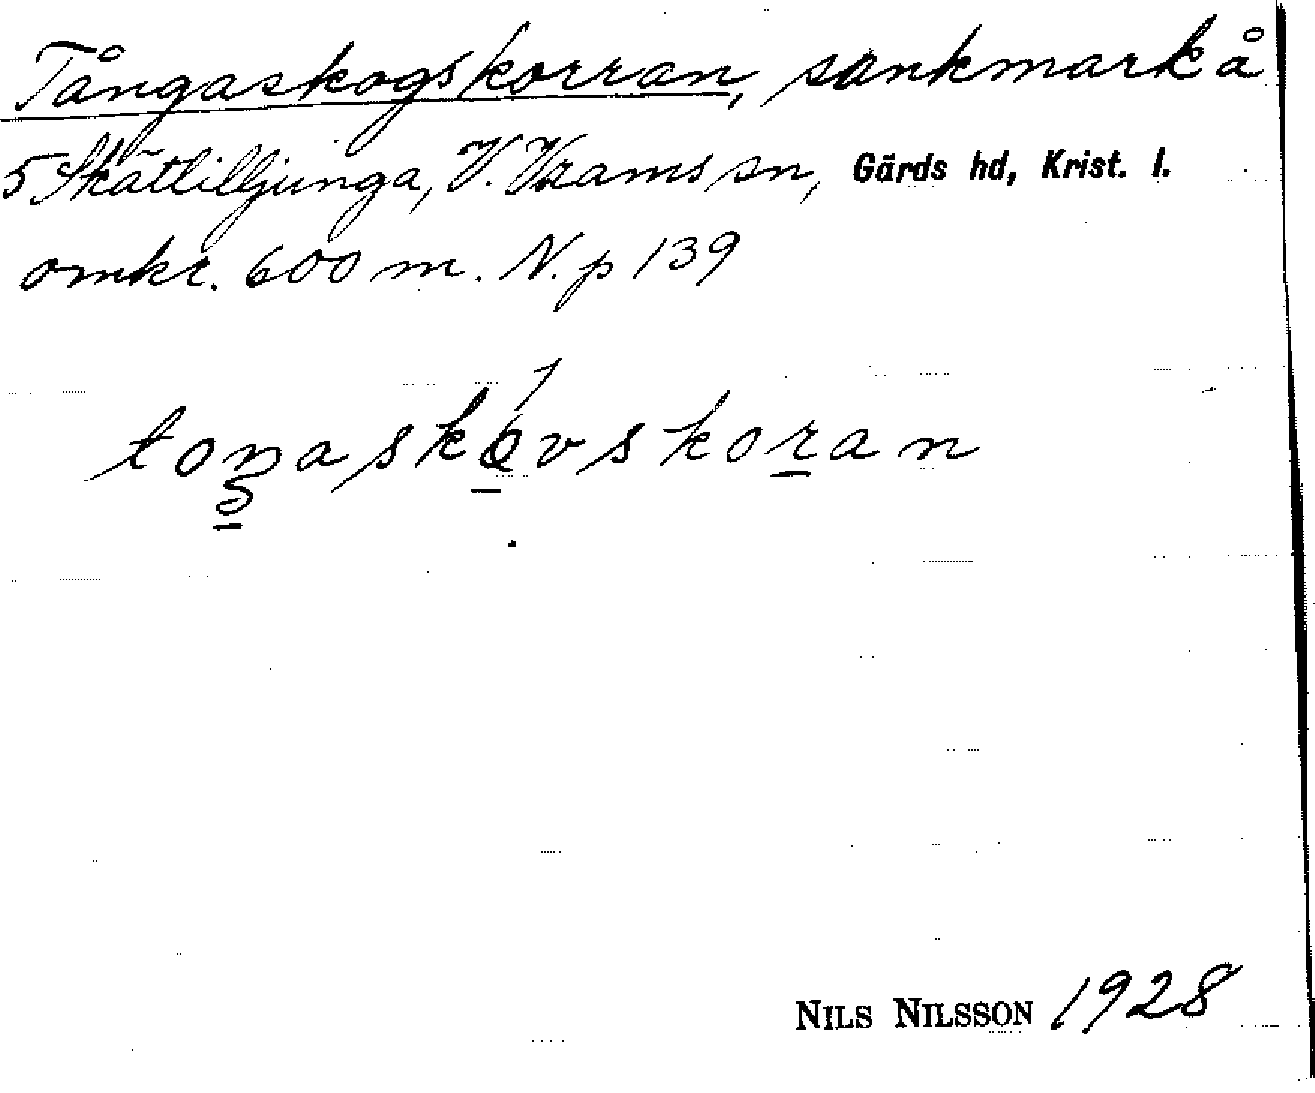 Tångaskogskorran, sankmark å
5 Skättilljunga, V. Vrams sn, Gärds hd, Krist. l.
omkr. 600 m. N. p 139
toŋaskóvskoran
NILS NILSSON 1928